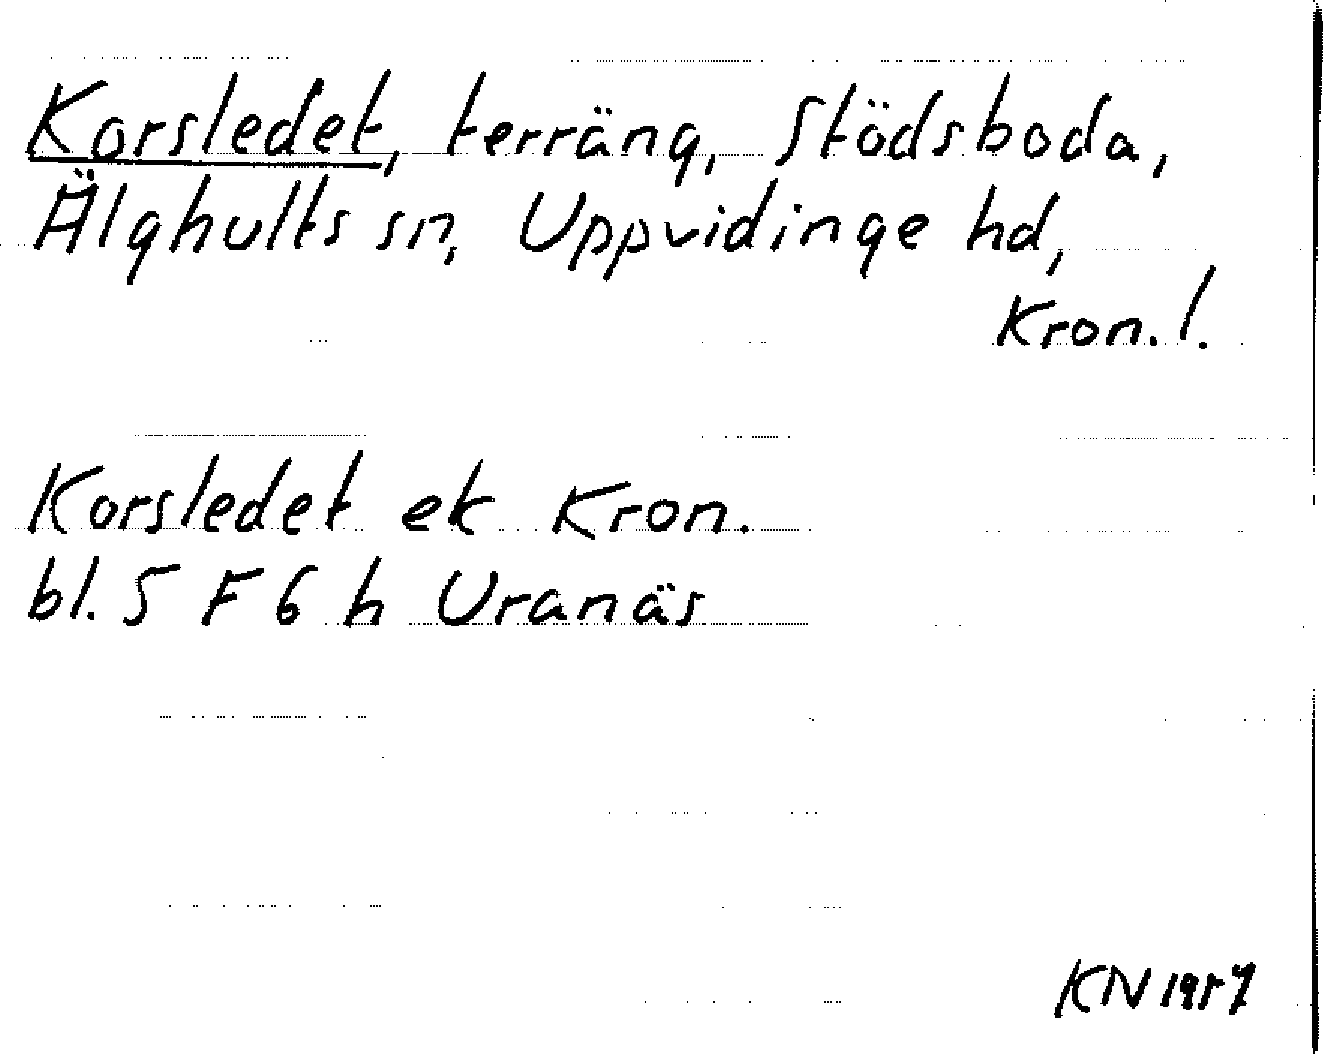 Korsledet, terräng, Stödsboda,
Älghults sn, Uppvidinge hd,
Kron. l.
Korsledet ek Kron.
bl. 5 F 6 h Uranäs
KN 1957